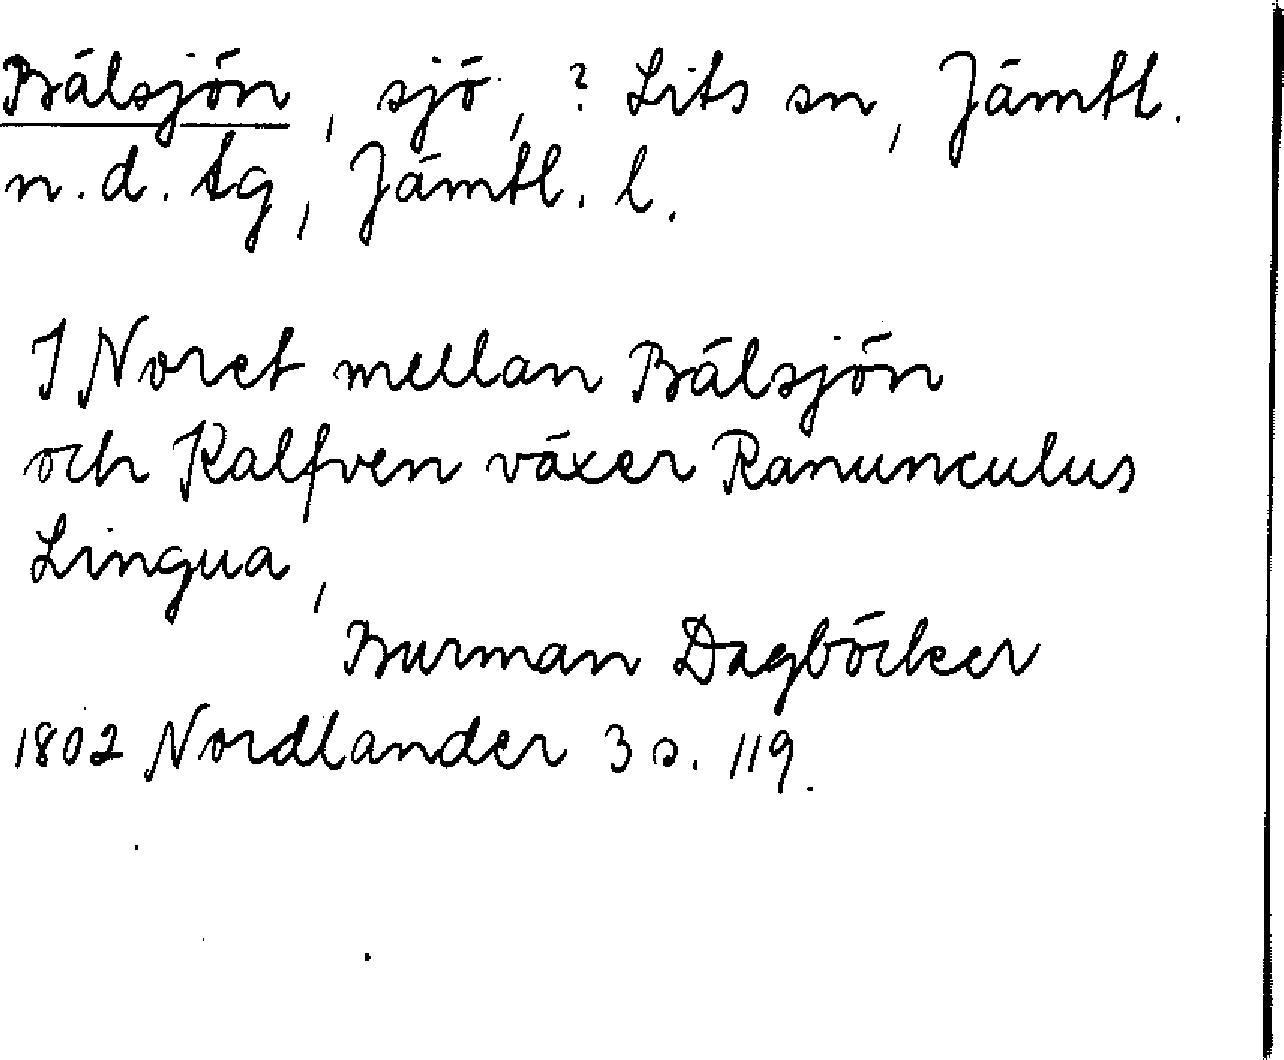 Bälsjön, sjö, ? Lits sn, Jämtl.
n. d. tg, Jämtl. l.
I Noret mellan Bälsjön
och Kalfven växer Ranunculus
Lingua,
Burman Dagböcker
1802 Nordlander 3 s. 119.